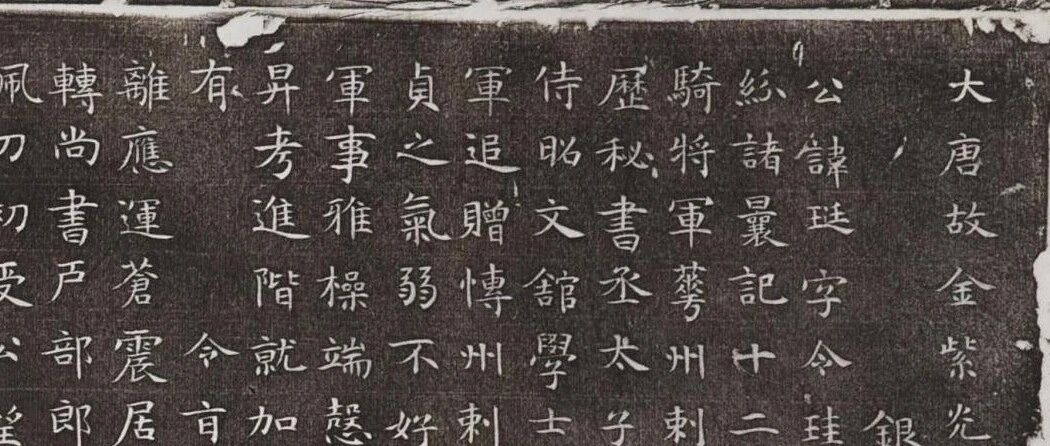 大唐故金紫光
銀
公諱珽字令珪
諸曩記十二
騎將軍蕐州刺
歷秘書丞太子
侍昭文舘學士
軍追贈慱州刺
貞之氣弱不好
軍事雅橾端愨
昇考進階就加
有　令
離應運蒼震居
轉尚書戶部郎
佩刀初受公